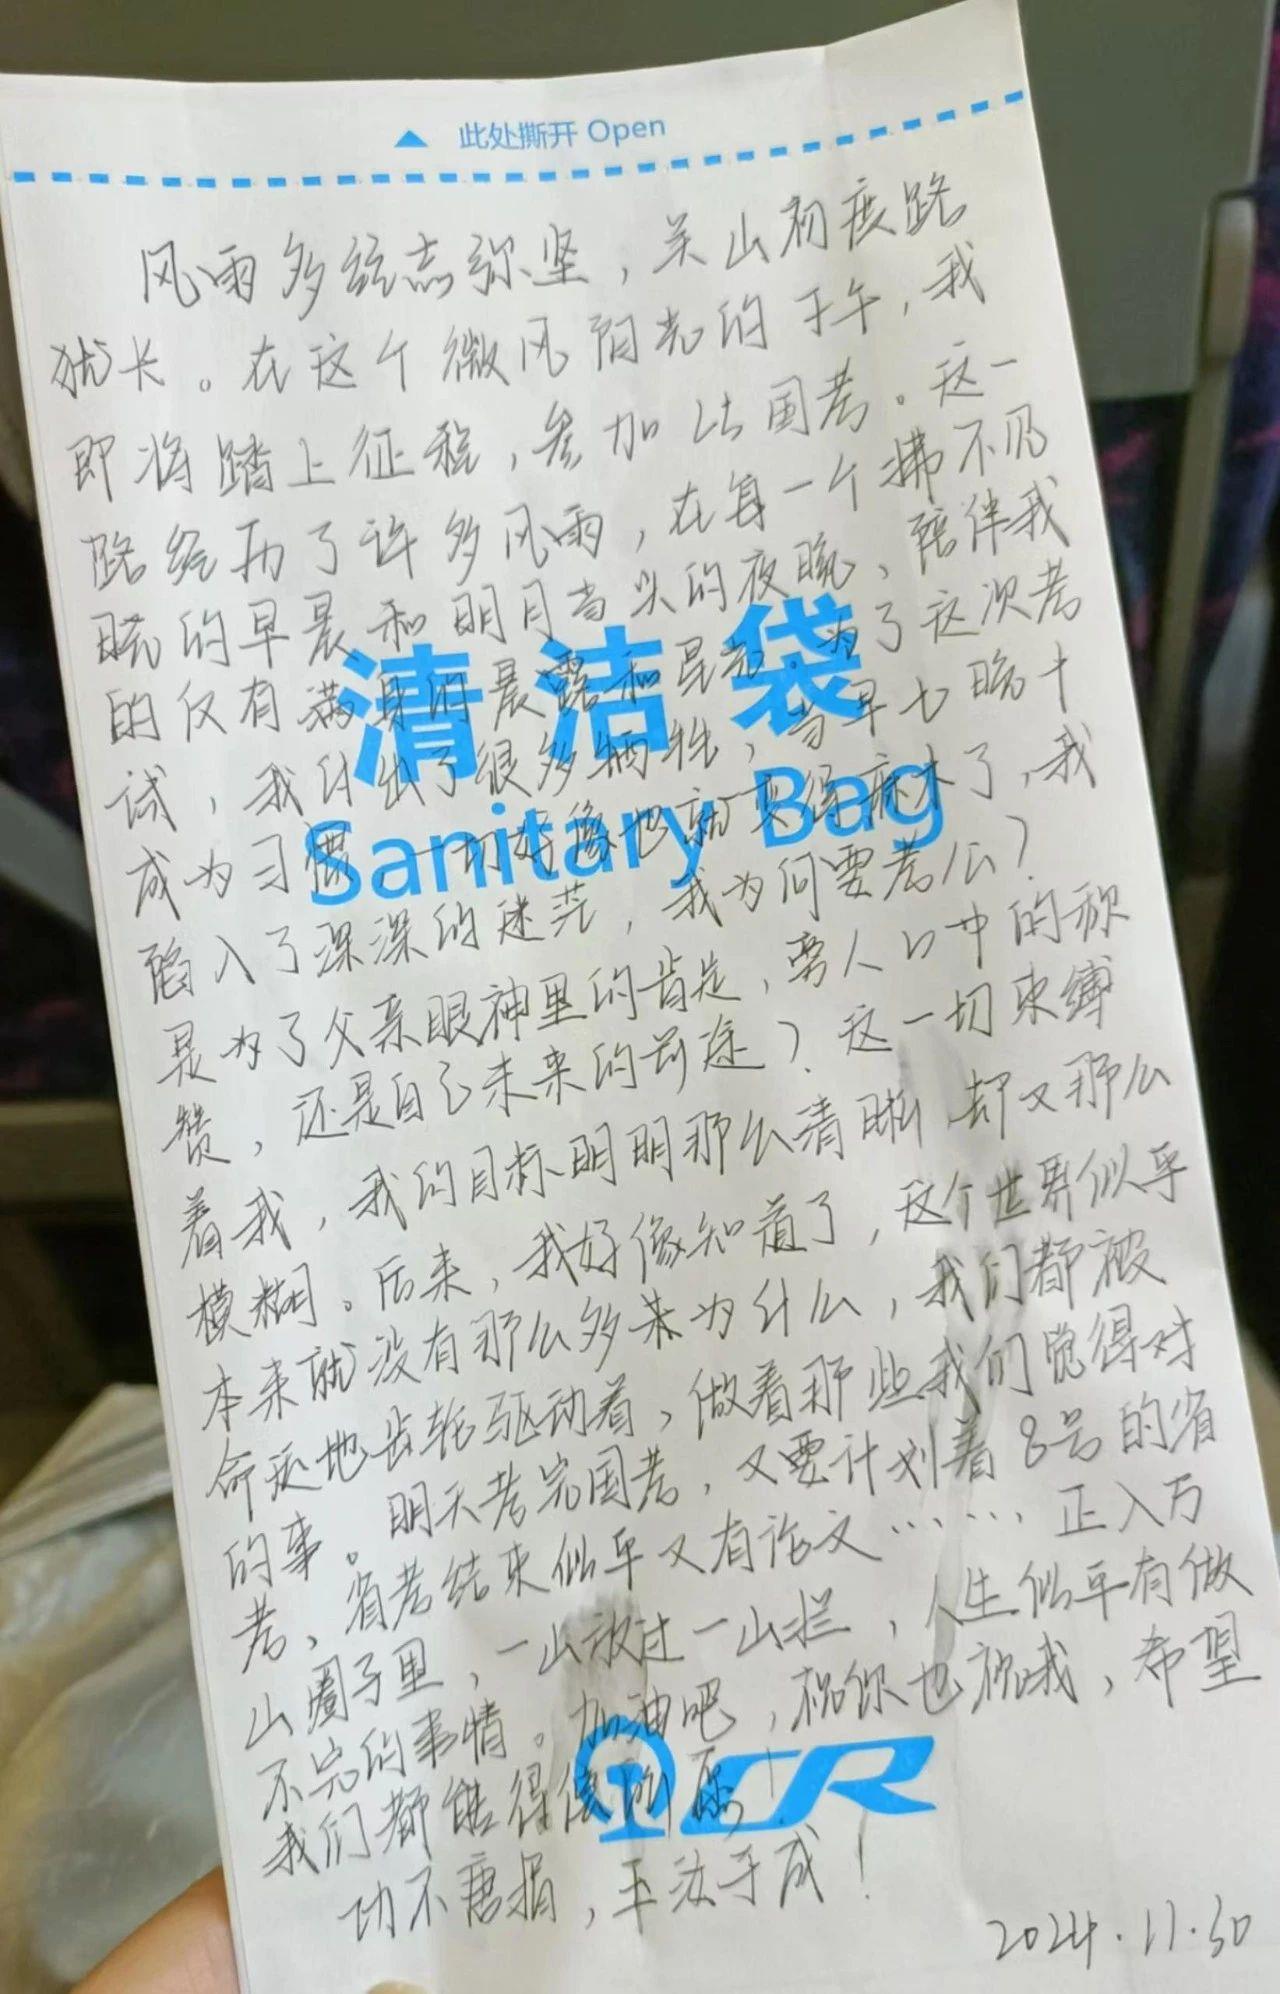 此处撕开 Open
风雨多经志弥坚，关山初度路
犹长。在这个微风阳光的下午，我
即将踏上征程，参加24国考。这一
路经历了许多风雨，在每一个拂不见
晓的早晨和明月当头的夜晚，陪伴我
的仅有满身的晨露和星光。为了这次考
试，我付出了很多牺牲，当早七晚十
成为习惯，一切好像也就变得麻木了，我
陷入了深深的迷茫，我为何要考公？
是为了父亲眼神里的肯定，旁人口中的称
赞，还是自己未来的前途？这一切束缚
着我，我的目标明明那么清晰，却又那么
模糊。后来，我好像知道了，这个世界似乎
本来就没有那么多来为什么，我们都被
命运地齿轮驱动着，做着那些我们觉得对
的事。明天考完国考，又要计划着8号的省
考，省考结束似乎又有论文……，正入万
山圈子里，一山放过一山拦，人生似乎有做
不完的事情。加油吧，祝你也祝我，希望
我们都能得偿所愿！
功不唐捐，玉汝于成！
2024.11.30
清洁袋
Sanitary Bag
CR